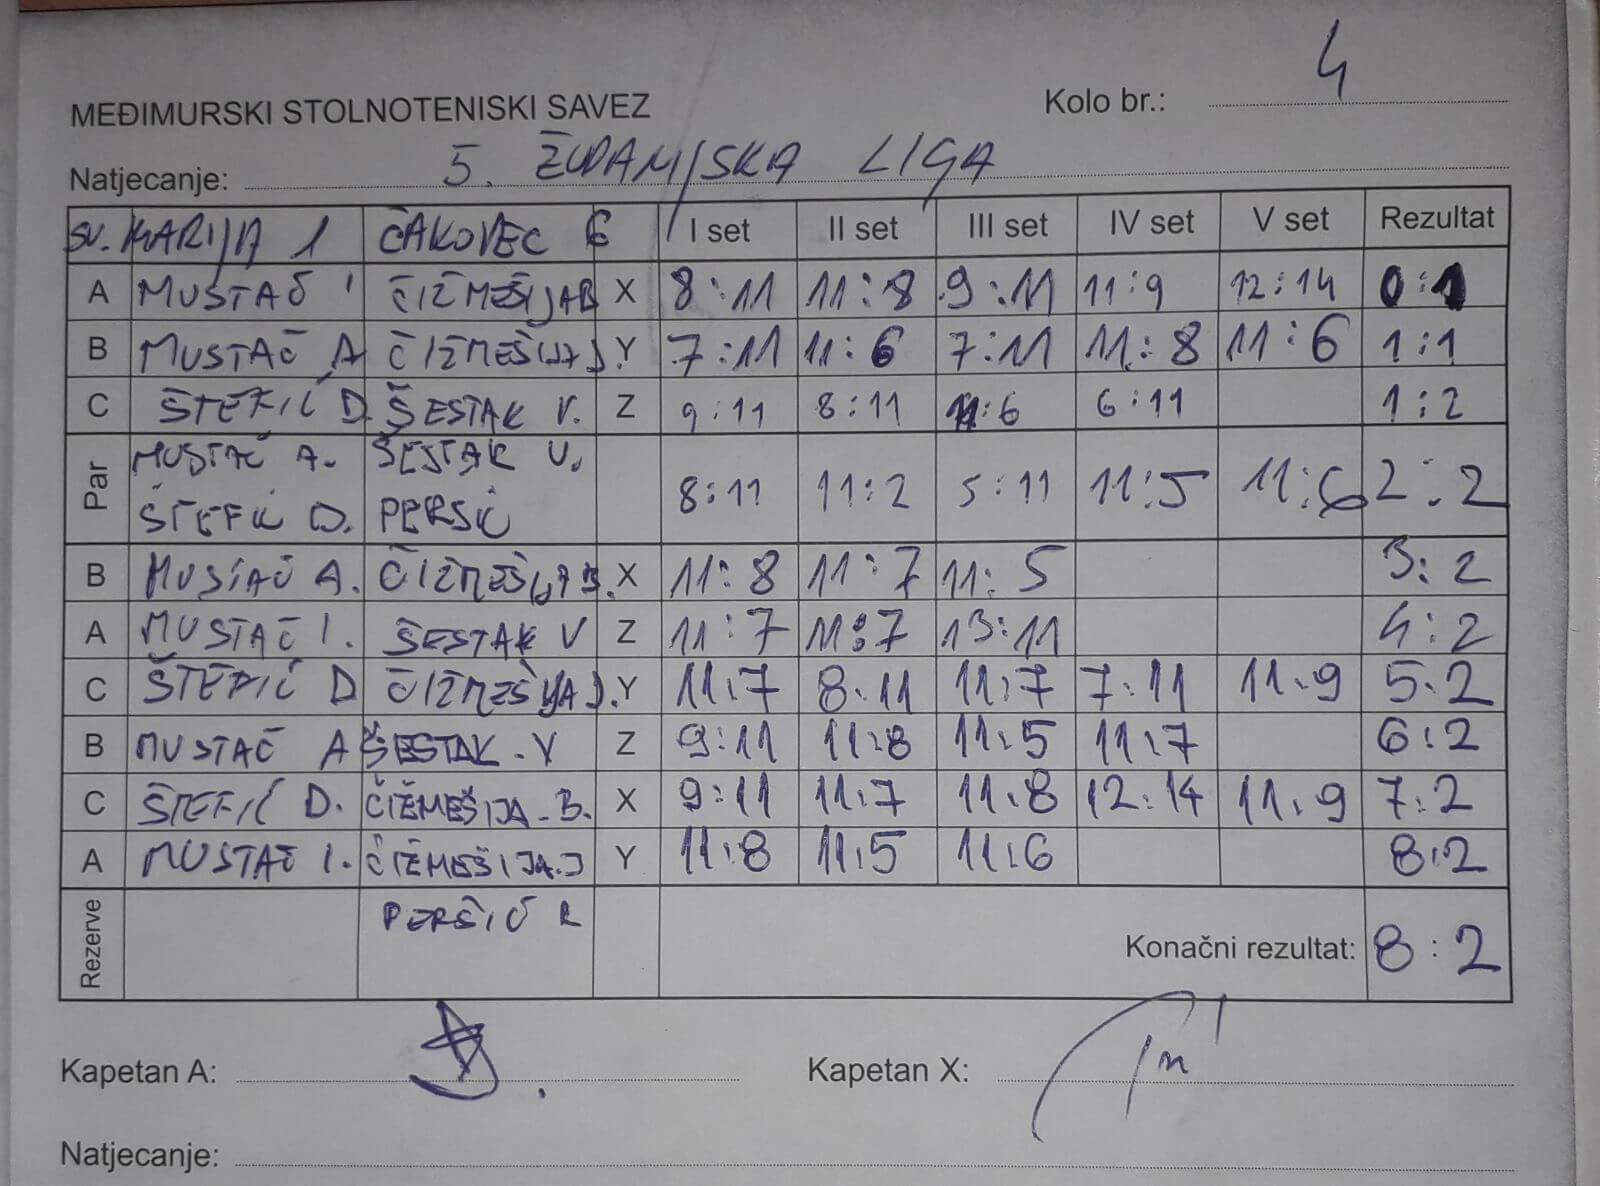 4
MEĐIMURSKI STOLNOTENISKI SAVEZ Kolo br.:
Natjecanje: 5. ŽUPANIJSKA LIGA
SV. MARIJA 1 ČAKOVEC 6 I set II set III set IV set V set Rezultat
A MUSTAČ I ČIŽMEŠIJA B X 8:11 11:8 9:11 11:9 12:14 0:1
B MUSTAČ A ČIŽMEŠIJA J. Y 7:11 11:6 7:11 11:8 11:6 1:1
C ŠTEFIĆ D. ŠESTAK V. Z 9:11 8:11 11:6 6:11 1:2
Par MUSTAČ A. ŠESTAK V.
ŠTEFIĆ D. PERŠIĆ 8:11 11:2 5:11 11:5 11:6 2:2
B MUSTAČ A. ČIŽMEŠIJA B. X 11:8 11:7 11:5 3:2
A MUSTAČ I. ŠESTAK V Z 11:7 11:7 13:11 4:2
C ŠTEFIĆ D ČIŽMEŠIJA J. Y 11:7 8:11 11:7 7:11 11:9 5:2
B MUSTAČ A ŠESTAK.V Z 9:11 11:8 11:5 11:7 6:2
C ŠTEFIĆ D. ČIŽMEŠIJA-B. X 9:11 11:7 11:8 12:14 11:9 7:2
A MUSTAČ I. ČIŽMEŠIJA.J Y 11:8 11:5 11:6 8:2
Rezerve PERŠIĆ R
Konačni rezultat: 8:2
Kapetan A: Kapetan X:
Natjecanje: